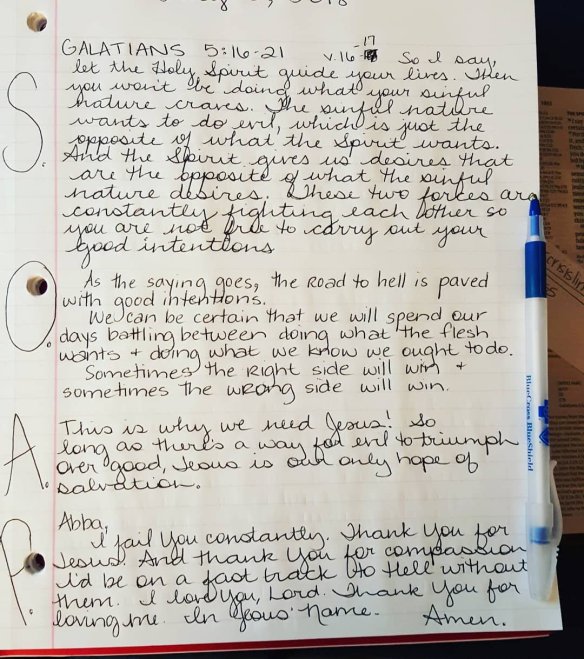 GALATIANS 5:16-21 v.16-17 So I say,
let the Holy Spirit guide your lives. Then
you won't be doing what your sinful
nature craves. The sinful nature
wants to do evil, which is just the
opposite of what the Spirit wants.
And the Spirit gives us desires that
are the opposite of what the sinful
nature desires. These two forces are
constantly fighting each other so
you are not free to carry out your
good intentions
S.
As the saying goes, the road to hell is paved
with good intentions.
We can be certain that we will spend our
days battling between doing what the flesh
wants + doing what we know we ought to do.
Sometimes the right side will win +
sometimes the wrong side will win.
O.
This is why we need Jesus! So
long as there's a way for evil to triumph
over good, Jesus is our only hope of
salvation.
A.
Abba,
I fail You constantly. Thank You for
Jesus. And thank You for compassion
I'd be on a fast track to Hell without
them. I love You, Lord. Thank You for
loving me. In Jesus' Name. Amen.
P.
BlueCross BlueShield